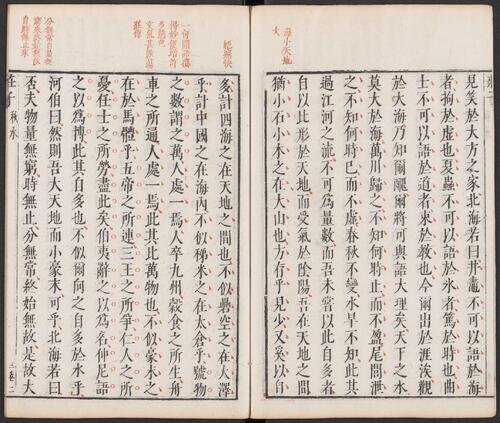 見笑於大方之家北海若曰井鼃不可以語於海
者拘於虛也夏蟲不可以語於氷者篤於時也曲
士不可以語於道者束於教也今爾出於涯涘觀
於大海乃知爾醜爾將可與語大理矣天下之水
莫大於海萬川歸之不知何時止而不盈尾閭泄
之不知何時已而不虛春秋不變水旱不知此其
過江河之流不可為量數而吾未嘗以此自多者
自以比形於天地而受氣於陰陽吾在天地之間
猶小石小木之在大山也方存乎見少又奚以自
多計四海之在天地之間也不似礨空之在大澤
乎計中國之在海內不似稊米之在太倉乎號物
之數謂之萬人處一焉人卒九州穀食之所生舟
車之所通人處一焉此其比萬物也不似豪末之
在於馬體乎五帝之所連三王之所爭仁人之所
憂任士之所勞盡此矣伯夷辭之以為名仲尼語
之以為博此其自多也不似爾向之自多於水乎
河伯曰然則吾大天地而小豪末可乎北海若曰
否夫物量無窮時無止分無常終始無故是故大
莊子 秋水